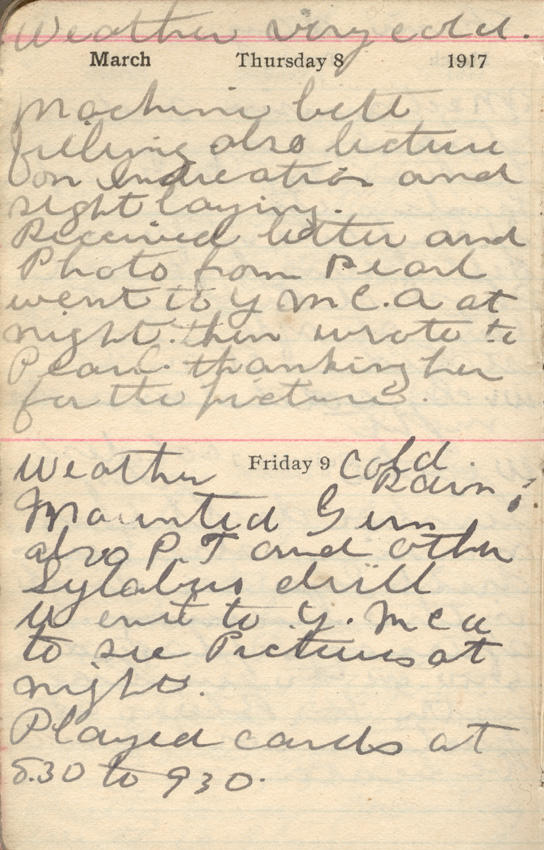 Weather very cold.
March Thursday 8 1917
Machine belt
filling also lecture
on indication and
sight laying.
Received letter and
Photo from Pearl
went to Y M C.A at
night. then wrote to
Pearl thanking her
for the picture.
Weather Friday 9 Cold
Rain
Mounted Gun
also P.T and other
Sylabus drill
Went to Y. M C A
to see Pictures at
night.
Played cards at
8.30 to 9 30.